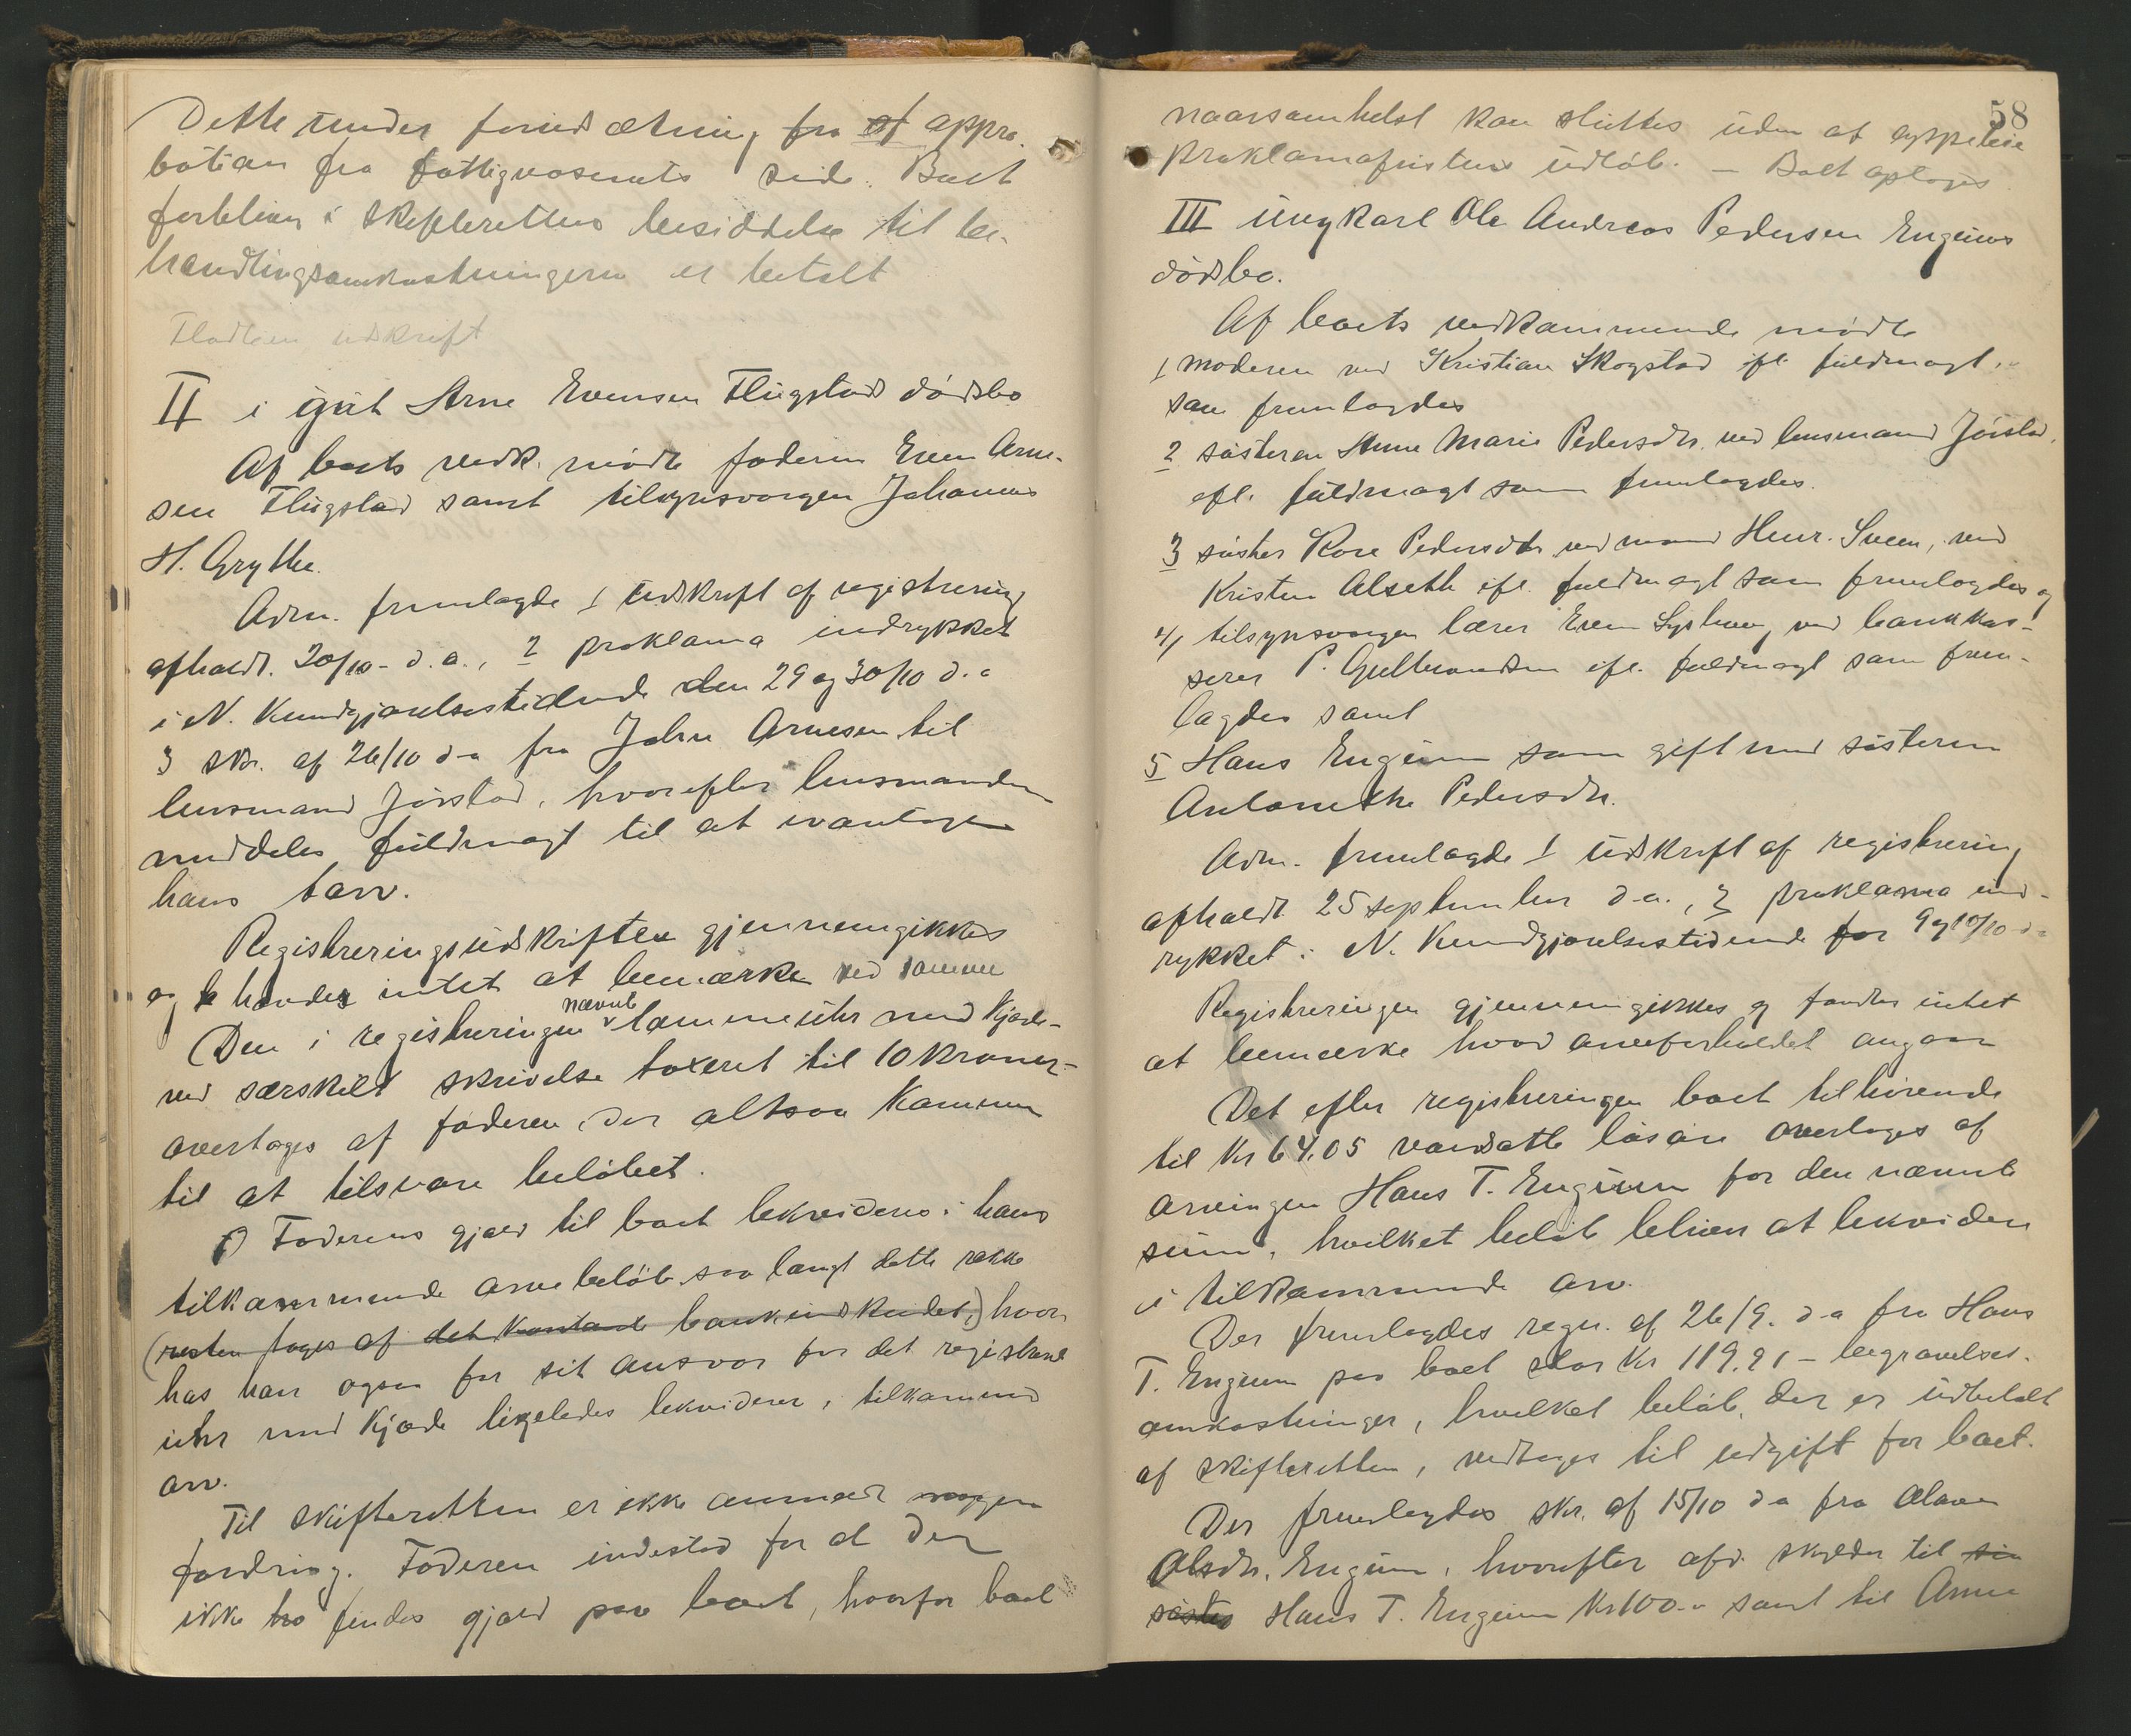 Dette under forudsætning fra at appro-
bation fra fattigvæsenets side. Boet
forbliver i skifterettens besiddelse til be-
handlingsomkostningerne er betalt
Flodten udskrift
II i ugivt Arne Evensen Flugstad dödsbo
Af boets vedk. mödte faderen Even Arne-
sen Flugstad samt tilsynsvorgen Johannes
H. Grytte.
Adm. fremlagde 1 udskrift af registrering
afholdt. 20/10 - d.a., 2 proklama indrykket
i N. Kundgjörelsestidende den 29 og 30/10 d.a
3 skr. af 26/10 d-a fra John Arnesen til
lensmand Jörstad, hvorefter lensmanden
meddeles fuldmagt til at ivaretage
hans tarv.
Registreringsudskriften gjennemgikkes
og havdes intet at bemærke ved samme
Den i registreringen nævnte lommeuhr med kjæde-
ved særskilt skrivelse taxeret til 10 kroner -
overtages af faderen, der altsaa kommer
til at tilsvare belöbet.
Faderens gjæld til boet lekvideres i hans
tilkommende arvebelöb saa langt dette række
(resten tages af det kontante bankindskudet,) hvor
hos han ogsaa for sit ansvar for det registrerte
uhr med kjæde ligeledes lekviderer i tilkommend
arv.
Til skifteretten er ikke anmeldt nogen
fordring. Faderen indestod for at der
ikke findes gjæld paa boet, hvorfor boet
58
naarsomhelst kan sluttes uden at oppebie
proklamafristens udlöb. - Boet optoges
III ungkarl Ole Andreas Pedersen Engums
dödsbo.
Af boets vedkommende mödte
1 moderen ved Kristian Skogstad ifl. fuldmagt
som fremlagdes
2 sösteren Anne Marie Pedersdtr. ved lensmand Jörstad,
efl. fuldmagt som fremlagdes.
3 söster Kare Pedersdtr ved mand Henr. Sveen, ved
Kristen Alseth ifl. fuldmagt som fremlagdes og
4, tilsynsvorgen lærer Even Lyshaug ved bankkas-
serer P. Gulbrandsen ifl. fuldmagt som frem-
lagdes samt
5 Hans Engum som gift med sösteren
Antonethe Pedersdtr.
Adm. fremlagde 1 udskrift af registrering
afholdt 25 september d-a., 2 proklama ind-
rykket i N. Kundgjörelsestidende for 9 og 10/10 d-a
Registreringen gjennemgikkes og fandtes intet
at bemærke hvad arveforholdet angaar
Det efter registreringen boet tilhörende
til Kr 64.05 værdsatte lösöre overtages af
arvingen Hans T. Engum for den nævnte
sum, hvilket belöb bliver at lekvidere
i tilkommende arv.
Der fremlagdes regn. af 26/9. d-a fra Hans
T. Engum paa boet stor Kr 119.91 - begravelses-
omkostninger, hvilket belöb, der er udbetalt
af skifteretten, vedtages til udgift for boet.
Der fremlagdes skr. af 15/10 d a fra Olava
Olsdtr. Engum, hvorefter afd. skylder til sin
söster Hans T. Engum Kr 100.- samt til Anne